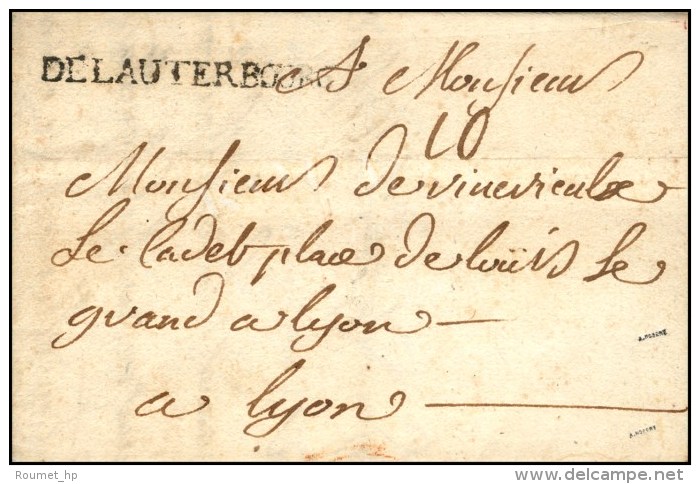 DELAUTERBOURG A Monsieur
10
Monsieur devinevieulx
Le Cadet place de loüis Le
grand a lyon
a lyon
A.ROBERT
A.ROBERT
Roumet_hp
www.delcampe.net